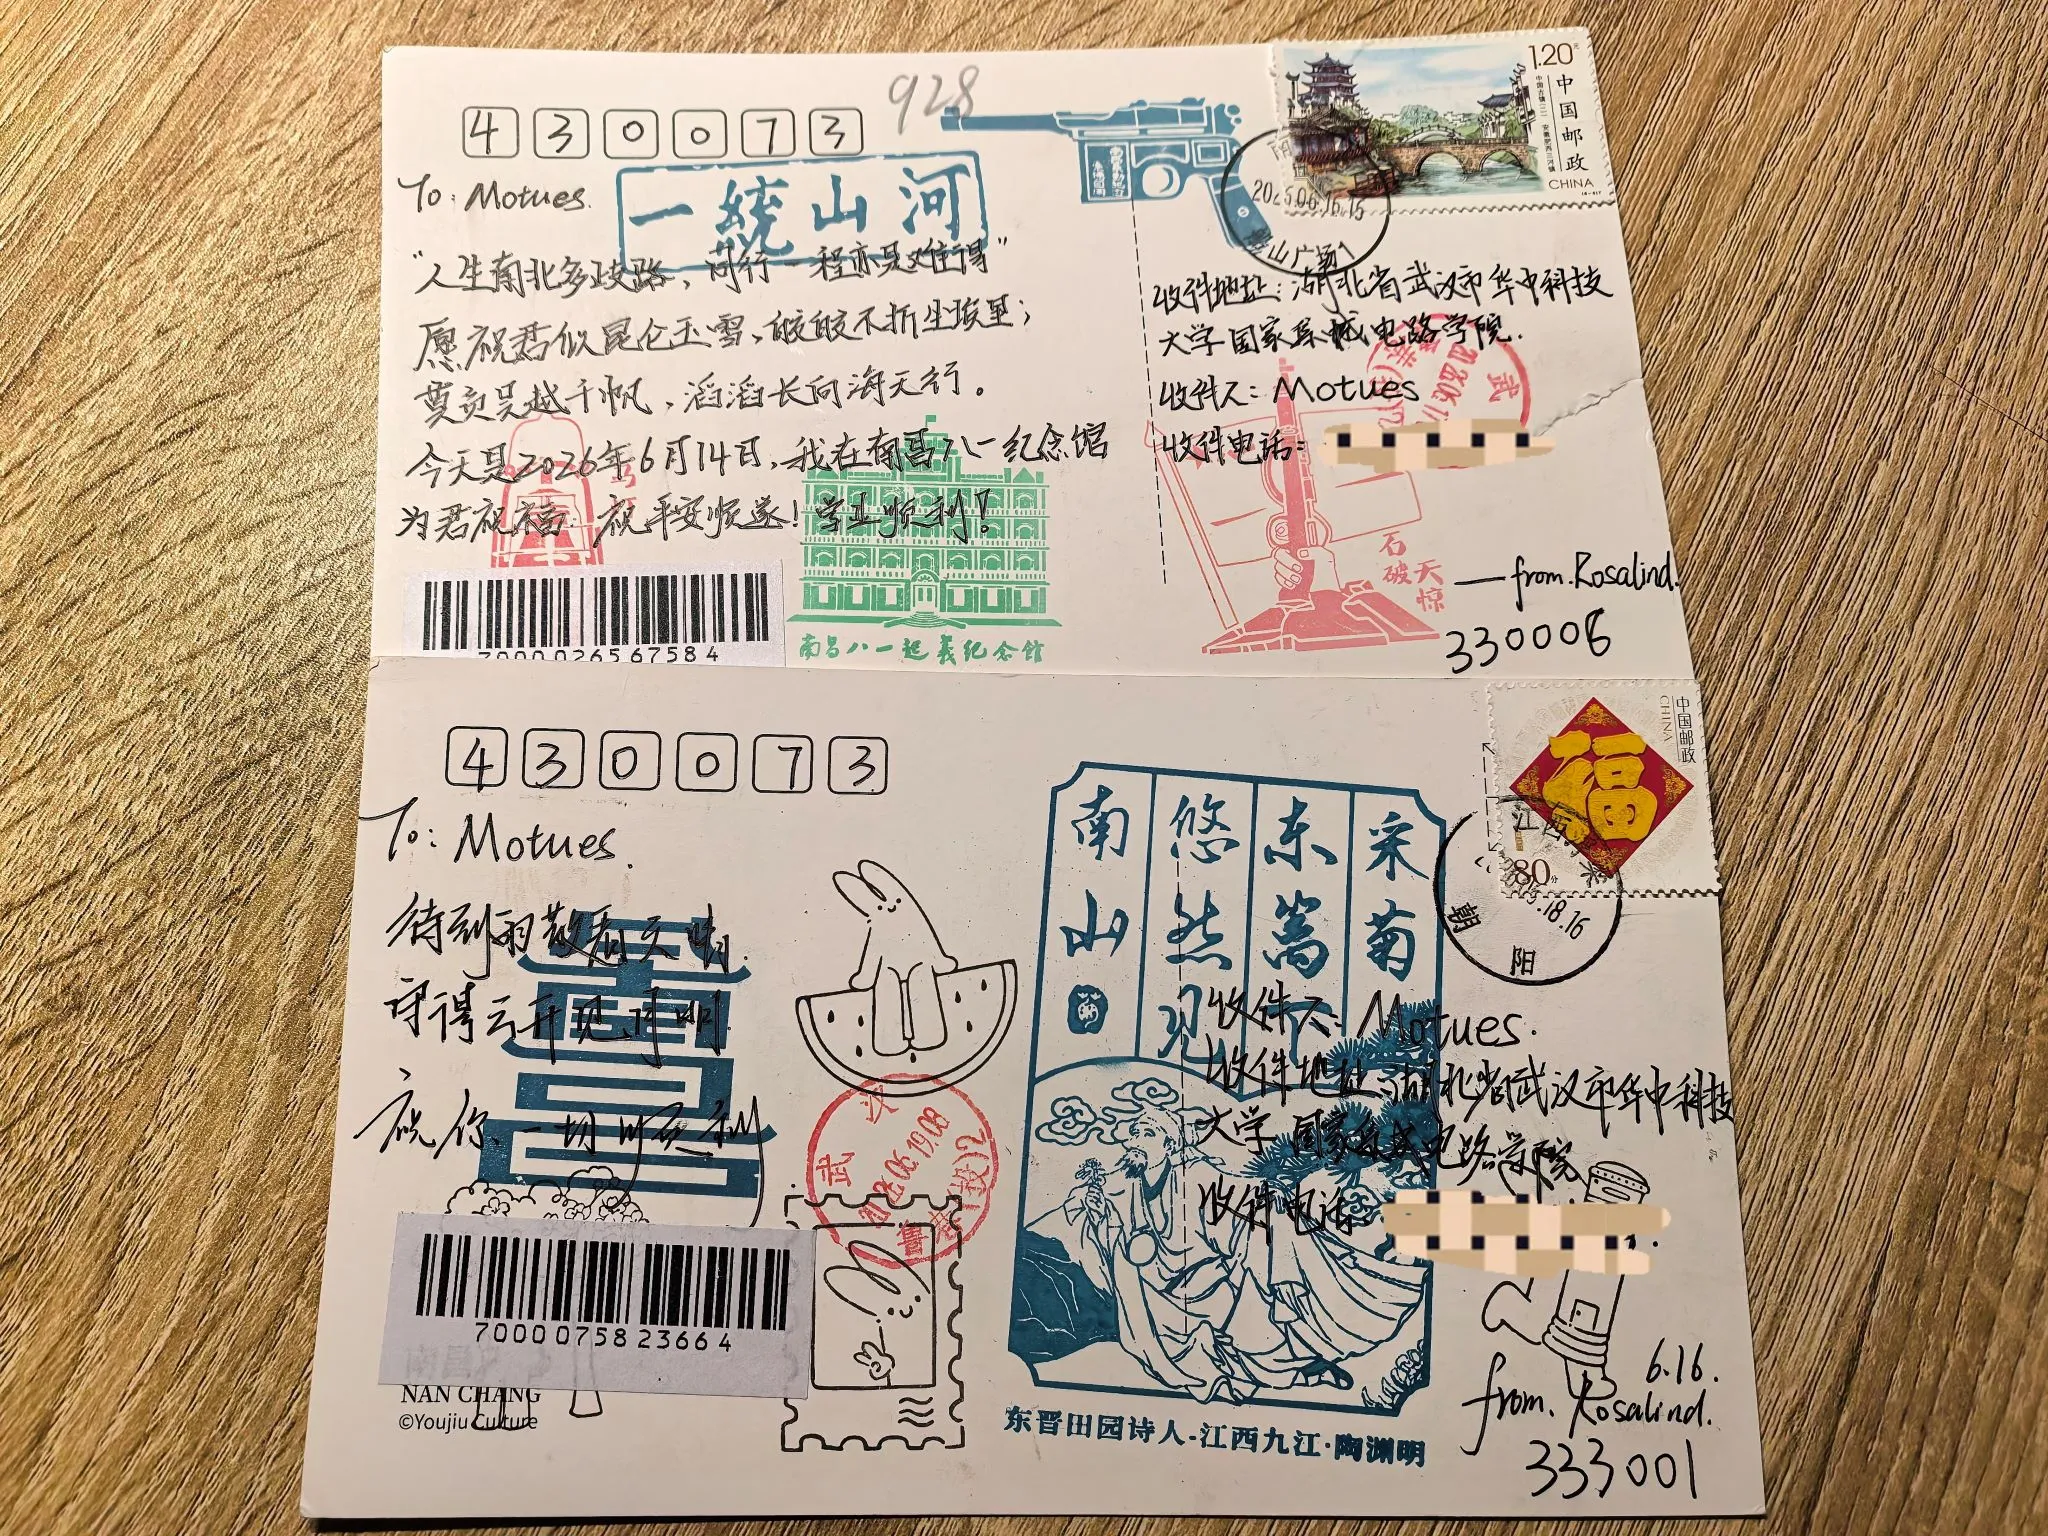 430073
928
To: Motues.
一统山河
"人生南北多歧路，同行一程亦是难得"
愿祝君似昆仑玉雪，皎皎不折尘埃里；
莫负吴越千帆，滔滔长向海天行。
今天是2026年6月14日，我在南昌八一纪念馆
为君祝福 祝平安顺遂！学业顺利！
7000026567584
南昌八一起义纪念馆
1.20元
中国邮政
CHINA
山广场1
收件地址：湖北省武汉市华中科技
大学国家集成电路学院.
收件人：Motues
收件电话：
武
石破天惊
—from.Rosalind.
330008
430073
To: Motues.
待到雨散看天晴.
守得云开见月明.
祝你、一切顺利
武
2026.06.19.08
7000075823664
NAN CHANG
©Youjiu Culture
采菊东篱下
悠然见南山
东晋田园诗人-江西九江·陶渊明
中国邮政
CHINA
福
80分
江西
18.16
朝阳
收件人：Motues.
收件地址：湖北省武汉市华中科技
大学国家集成电路学院
收件电话
6.16.
from. Rosalind.
333001